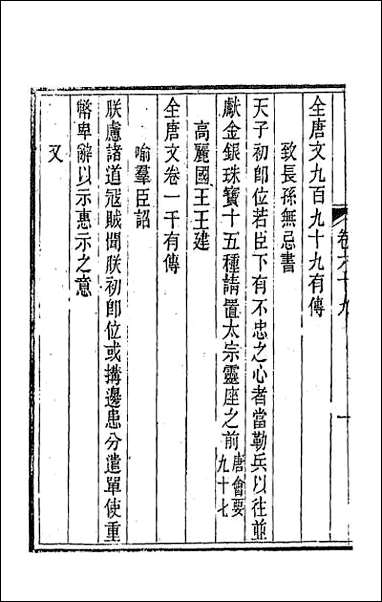 卷六十九
一
全唐文九百九十九有傳
致長孫無忌書
天子初卽位若臣下有不忠之心者當勒兵以往並
獻金銀珠寶十五種請置太宗靈座之前唐會要九十七
高麗國王王建
全唐文卷一千有傳
喻羣臣詔
朕慮諸道寇賊聞朕初卽位或搆邊患分遣單使重
幣卑辭以示惠示之意
又